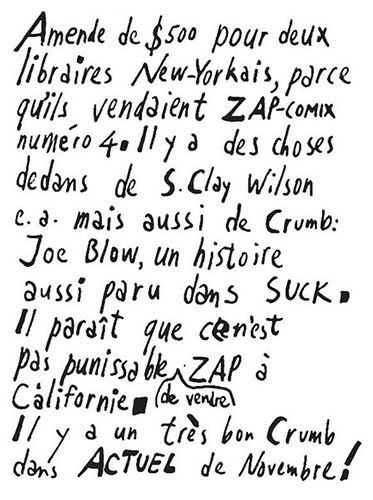 Amende de $500 pour deux
libraires New-Yorkais, parce
qu'ils vendaient ZAP-COMIX
numéro 4. Il y a des choses
dedans de S. Clay Wilson
e.a. mais aussi de Crumb:
Joe Blow, un histoire
aussi paru dans SUCK.
Il paraît que ce n'est
pas punissable ZAP à
(de vendre)
Californie.
Il y a un très bon Crumb
dans ACTUEL de Novembre!